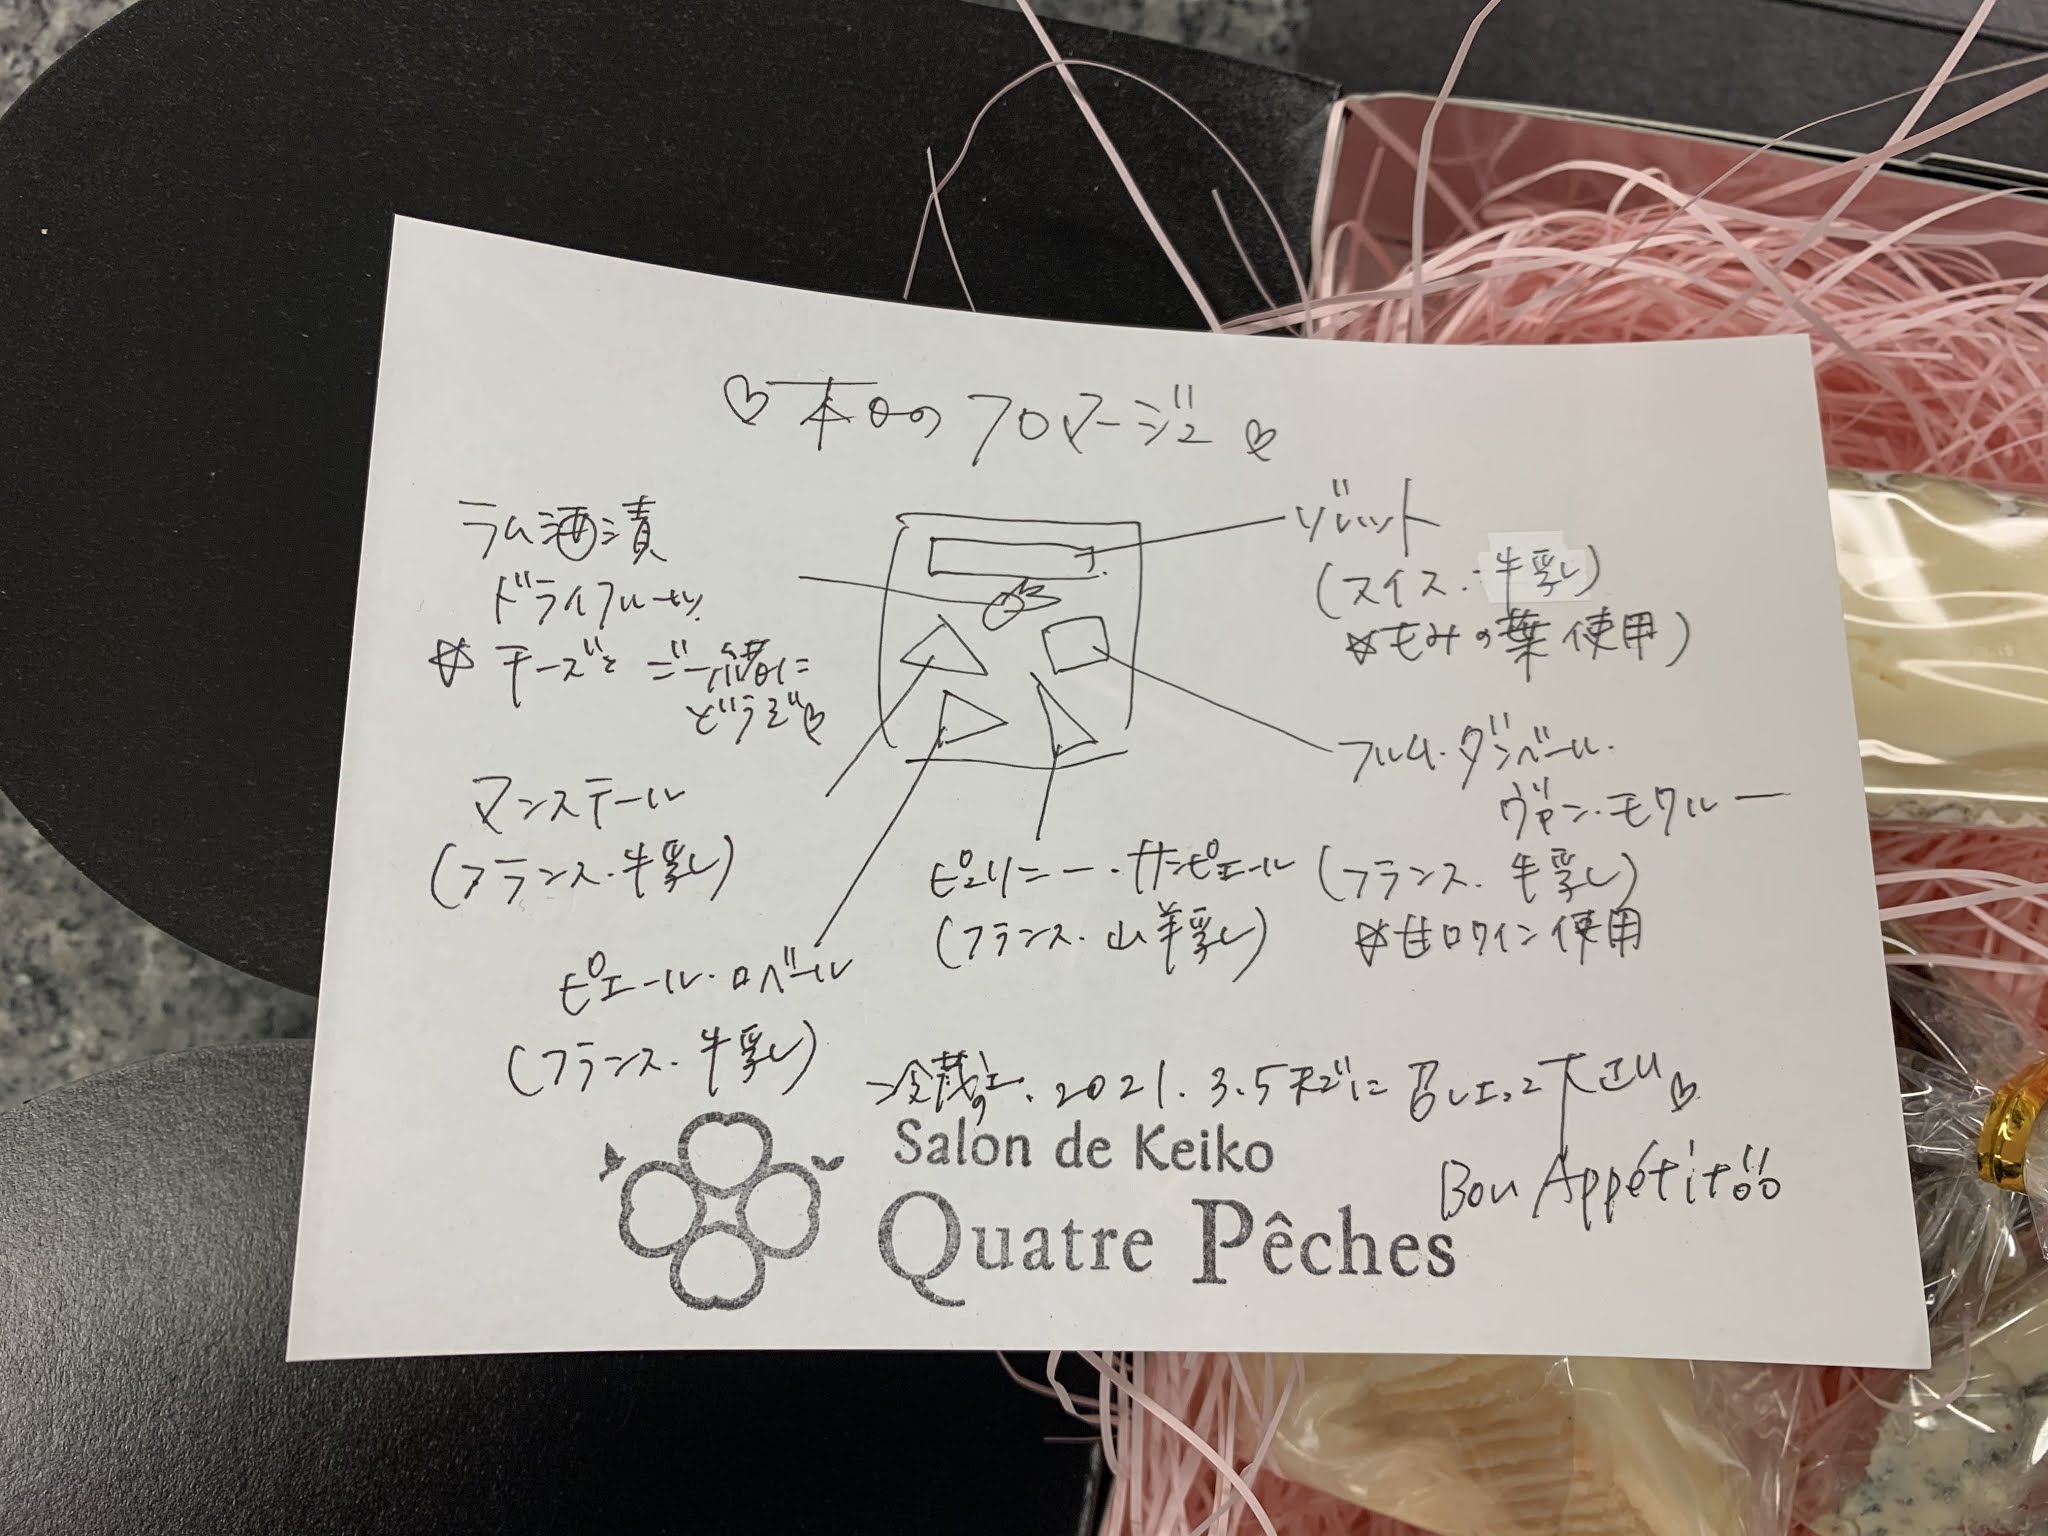 ♡本日のフロマージュ♡
ラム酒漬
ドライフルーツ
☆チーズとご一緒に
どうぞ♡
リレット
(スイス・牛乳)
☆もみの葉使用)
フルム・ダンベール・
ヴァン・モワルー
(フランス・牛乳)
☆甘口ワイン使用
マンステール
(フランス・牛乳)
ピュリニー・サンピエール
(フランス・山羊乳)
ピエール・ロベール
(フランス・牛乳)
2021.3.5までに召し上って下さい♡
Bon Appétit!!
Salon de Keiko
Quatre Pêches